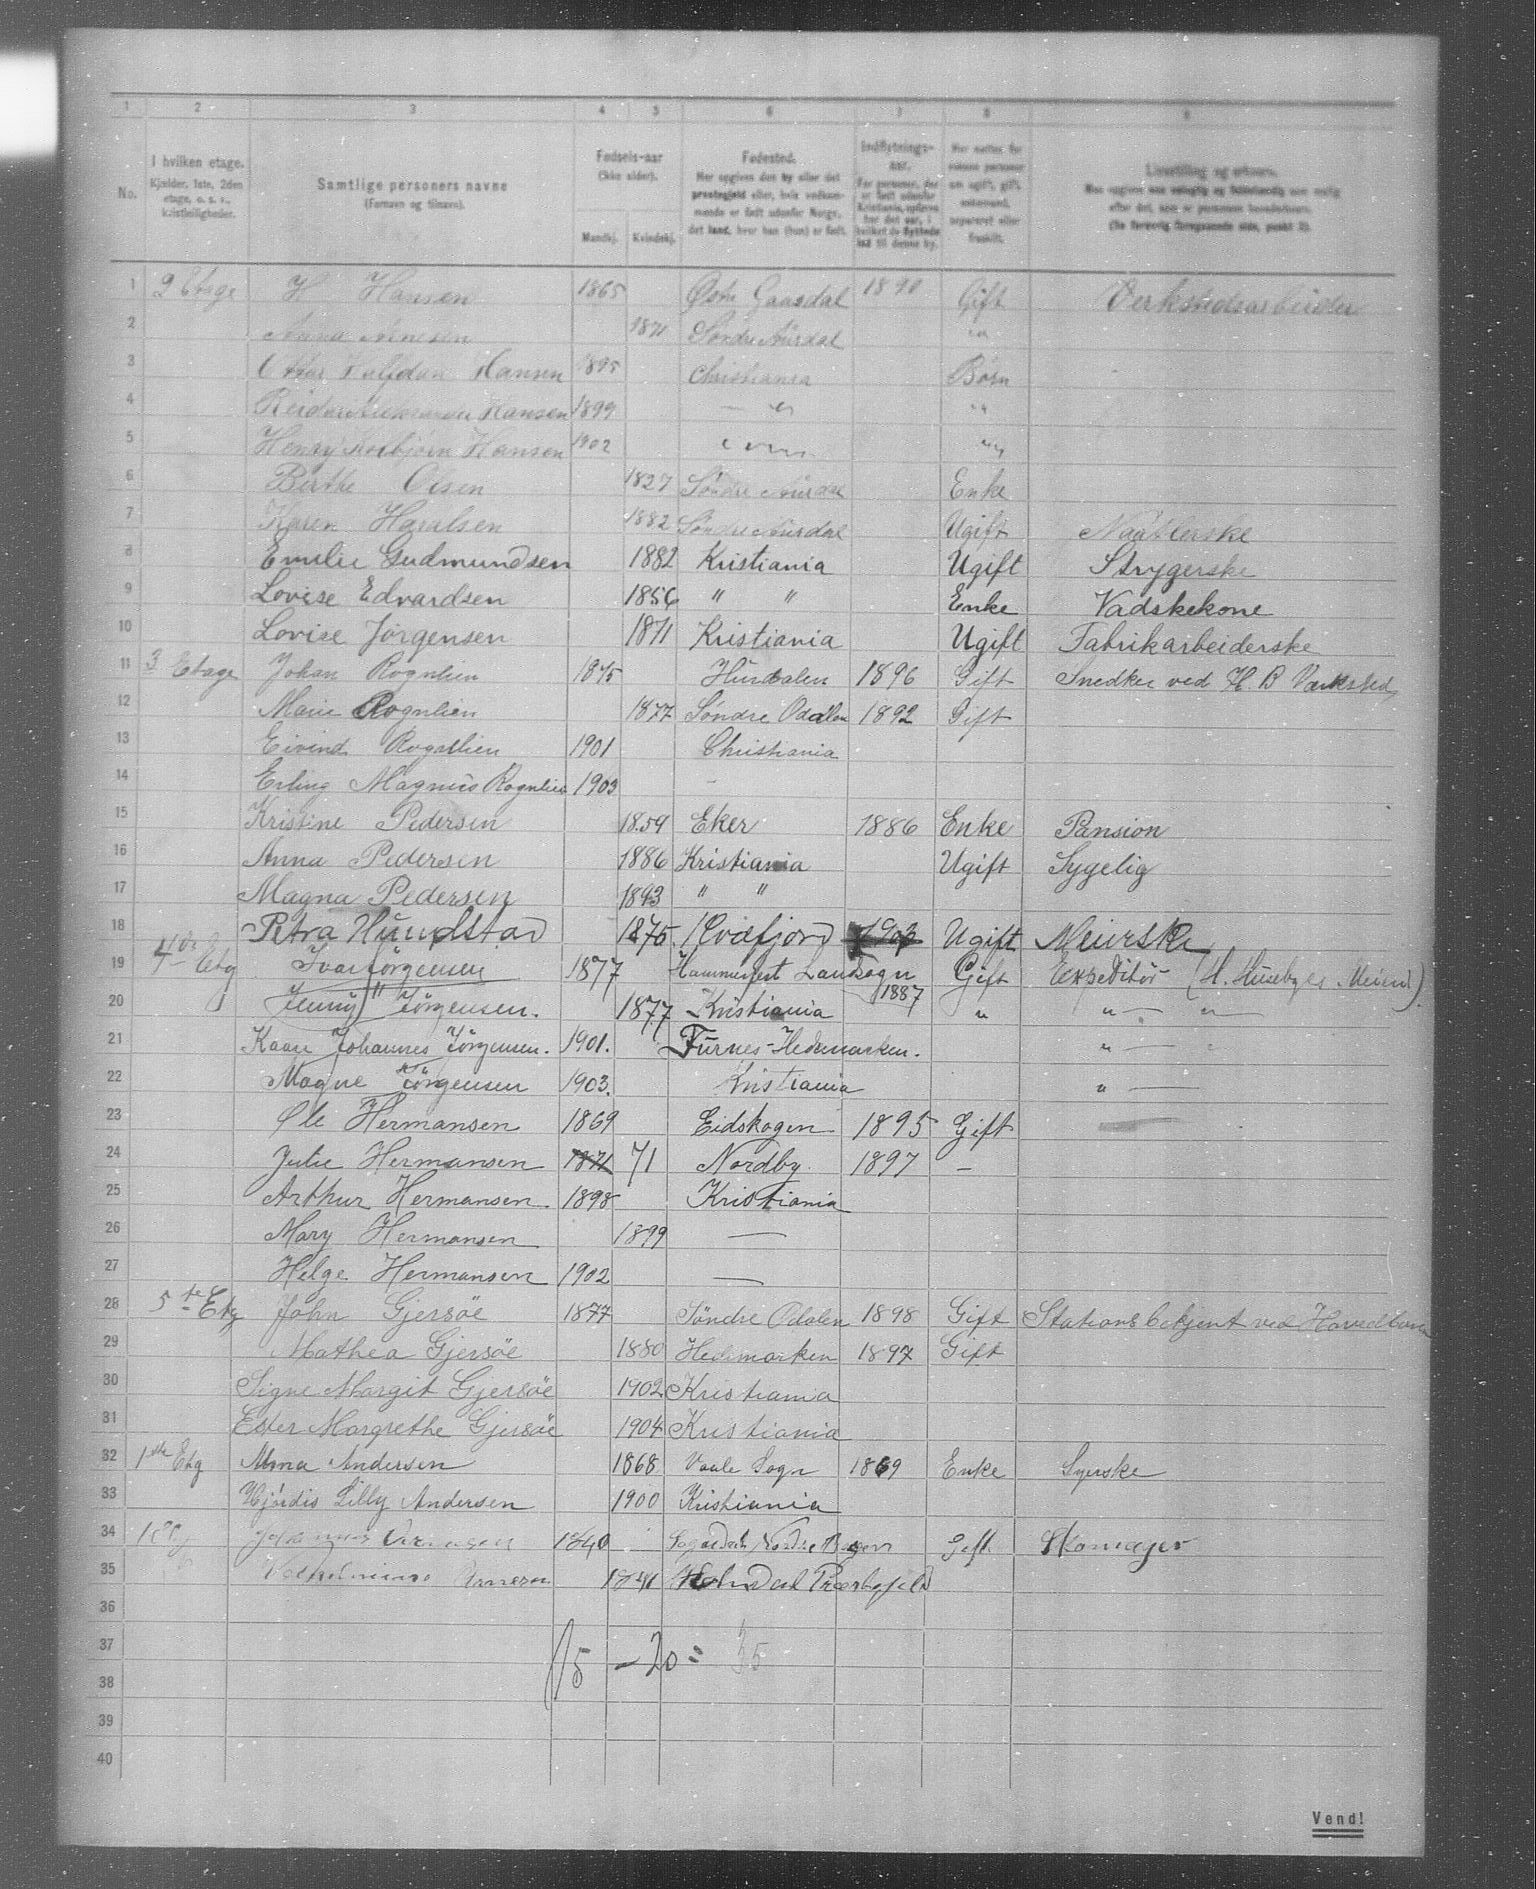 1 2 3 4 5 6 7 8 9
No. I hvilken etage. Kjælder, 1ste, 2den etage, o. s. v., kvistleiligheder. Samtlige personers navne (Fornavn og tilnavn). Fødsels-aar (ikke alder). Mandkj. Kvindekj. Fødested. Her opgives den by eller det præstegjeld eller, hvis vedkommende er født udenfor Norge, det land, hvor han (hun) er født. Indflytnings-aar. For personer, der er født udenfor Kristiania, opføres her det aar, i hvilket de flyttede ind til denne by.
1 2 Etage H Hansen 1865 Østre Gausdal 1890 Gift Verkstedsarbeider
2 Anna 1871 Søndre Aurdal " "
3 Halfdan Hansen 1895 Christiania Børn
4 Reidar Hansen 1899 — " " "
5 Henry Hansen 1902 " "
6 Berthe Olsen 1827 Søndre Aurdal Enke
7 Karen Haralsen 1882 Søndre Aurdal Ugift
8 Emilie Gudmundsen 1882 Kristiania Ugift Strygerske
9 Lovise Edvardsen 1856 " " Enke Vadskekone
10 Lovise Jørgensen 1871 Kristiania Ugift Fabrikarbeiderske
11 3 Etage Johan Rognlien 1875 Hurdalen 1896 Gift Snedker ved H. B Værksted
12 Marie Rognlien 1877 Søndre Odalen 1892 Gift
13 Eivind Rognlien 1901 Christiania
14 Erling Magnus Rognlien 1903 -
15 Kristine Pedersen 1859 Eker 1886 Enke Pansion
16 Anna Pedersen 1886 Kristiania Ugift Sygelig
17 Magna Pedersen 1893 " "
18 Petra Hundstad 1875 Kvæfjord 1903 Ugift Meierske
19 4de Etg Ivar Jörgensen 1877 Hammerfest Landsogn 1887 Gift Expeditör (H. Husebyes Meieri)
20 Jenny " Jörgensen. 1877 Kristiania " " — " —
21 Kaare Johannes Jörgensen. 1901. Furnes-Hedemarken. " — "
22 Magne Jörgensen 1903. Kristiania " —
23 Ole Hermansen 1869 Eidskogen 1895 Gift
24 Julie Hermansen 1871 71 Nordby 1897 —
25 Arthur Hermansen 1898 Kristiania
26 Mary Hermansen 1899 —
27 Helge Hermansen 1902 —
28 5te Etg John Gjersöe 1877 Söndre Odalen 1898 Gift Stationsbetjent ved Hovedbana
29 Mathea Gjersöe 1880 Hedemarken 1897 Gift
30 Signe Margit Gjersöe 1902 Kristiania
31 Ester Margrethe Gjersöe 1904 Kristiania
32 1ste Etg Alma Andersen 1868 Vaale Sogn 1869 Enke Syerske
33 Hjördis Lilly Andersen 1900 Kristiania
34 1 Etg 1840 Nordre Gift Skomager
35 1841 Præstegjeld
36
37 15 — 20 = 35
38
39
40
Vend!